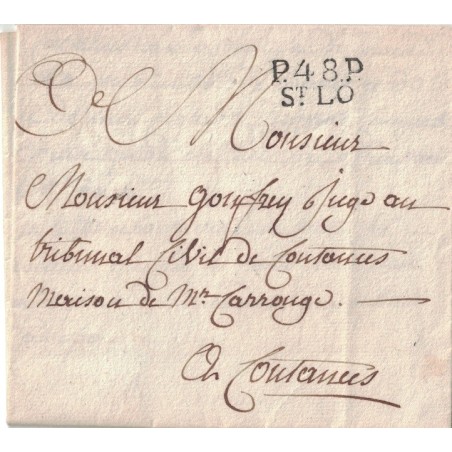 P.48.P.
ST LO
A Monsieur
Monsieur Gouffrey Juge au
tribunal Civil de Coutances
maison de Mr Carrouge.
A Coutances